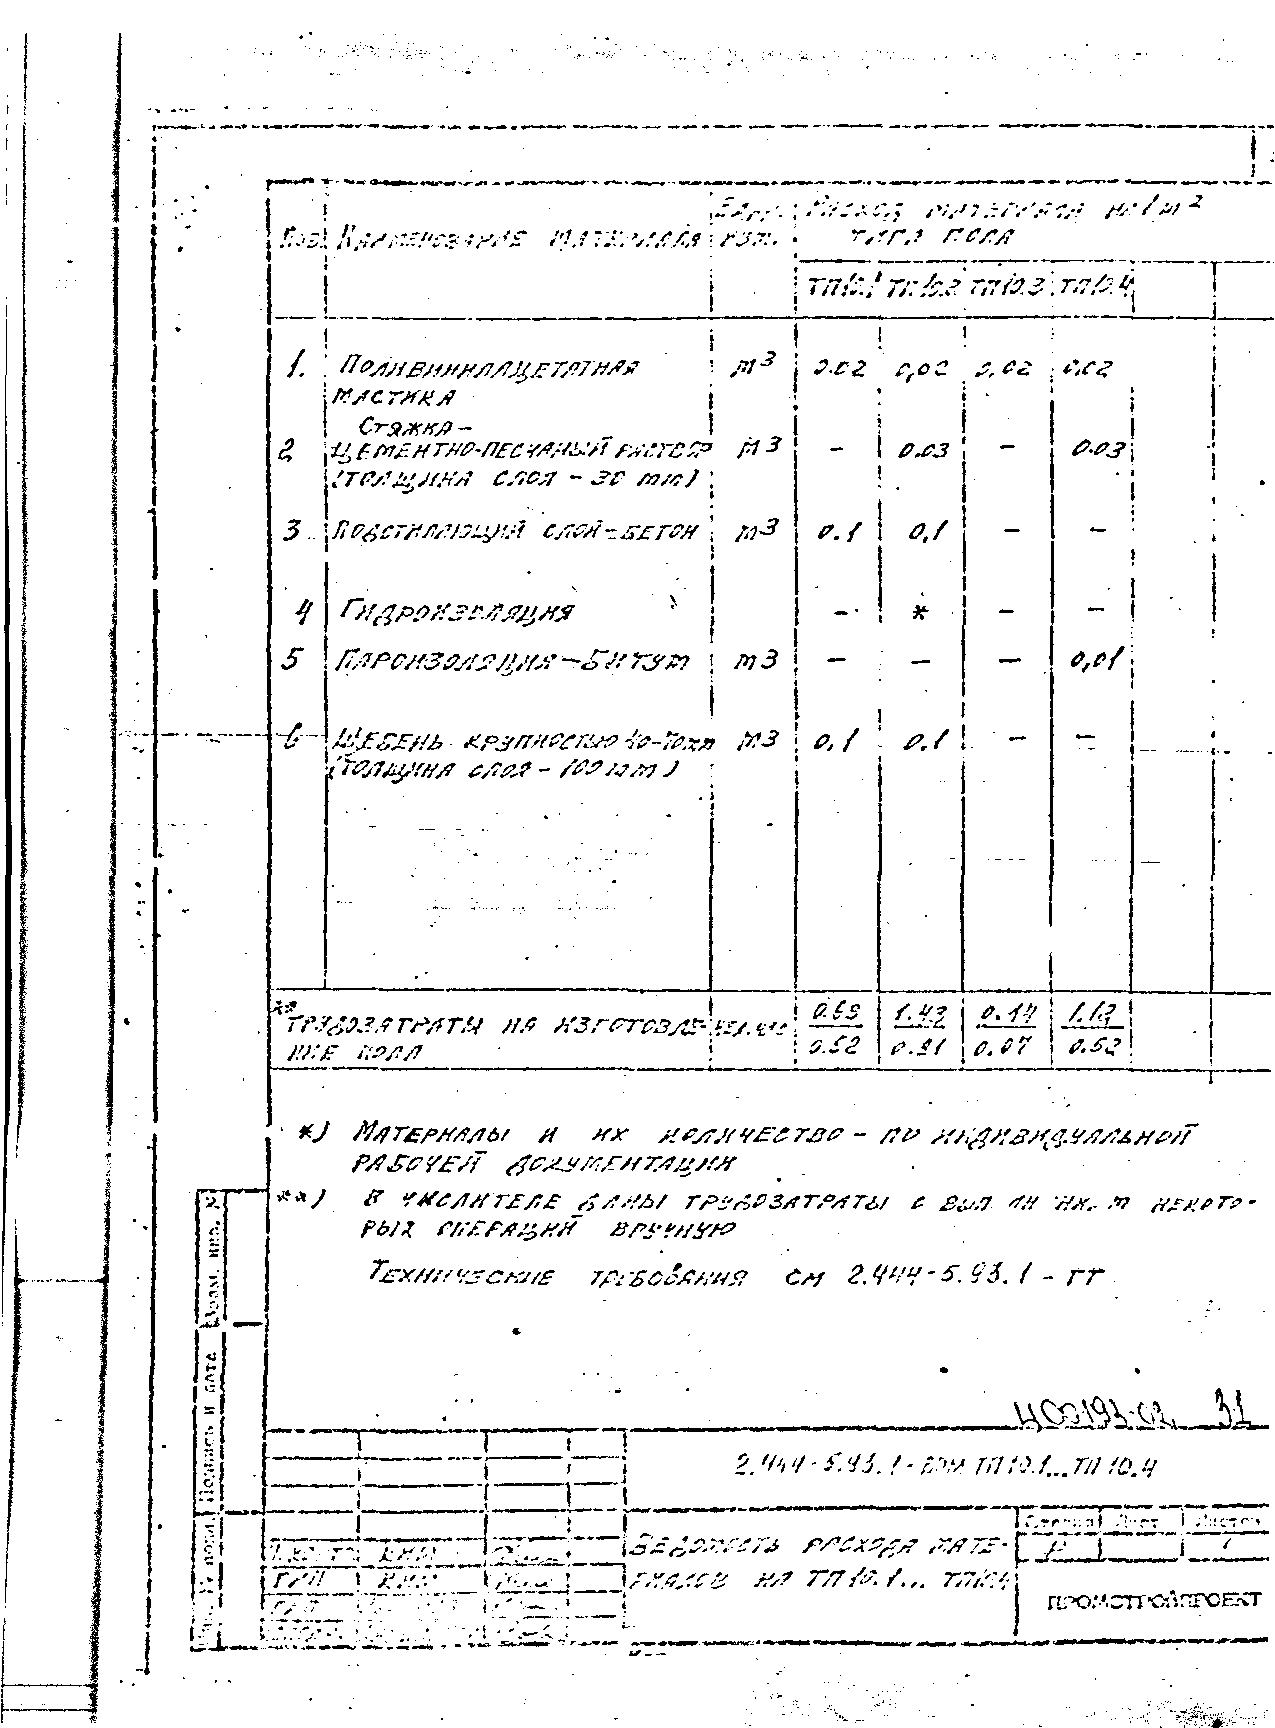 Поз. Наименование материала Един. изм. Расход материала на 1 м2 типа пола
ТП10.1 ТП10.2 ТП10.3 ТП10.4
1. Поливинилацетатная м3 0.02 0,02 0,02 0.02
мастика
Стяжка –
2 цементно-песчаный раствор м3 – 0.03 – 0.03
(толщина слоя – 30 мм)
3 Подстилающий слой – бетон м3 0.1 0,1 – –
4 Гидроизоляция – * – –
5 Пароизоляция – битум м3 – – – 0,01
6 Щебень крупностью 40-70мм м3 0,1 0.1 – –
(толщина слоя – 100 мм)
** Трудозатраты на изготовле- чел.час 0.69 1.43 0.14 1.12
ние пола 0.52 0.91 0.07 0.52
*) Материалы и их количество – по индивидуальной
рабочей документации
**) В числителе даны трудозатраты с некото-
рых операций вручную
Технические требования см 2.444-5.93.1 – ТТ
Ц00193-02 31
2.444-5.93.1- ТП10.1...ТП10.4
Стадия Лист Листов
Ведомость расхода мате- Р 1
риалов на ТП10.1... ТП10.4
ПРОМСТРОЙПРОЕКТ
Взам. инв. №
Подпись и дата